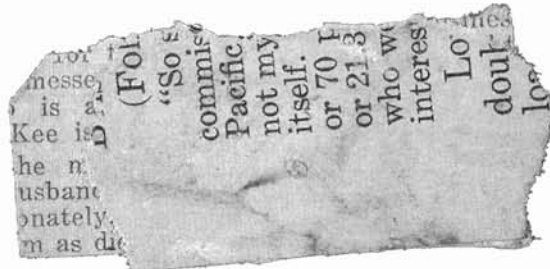 for t
messe
is a
Kee is
he m
usband
onately.
m as die
(Fol
“So s
commiss
Pacific.
not my
itself.
or 70
or 21 3
who we
interes
Lo
doub
los